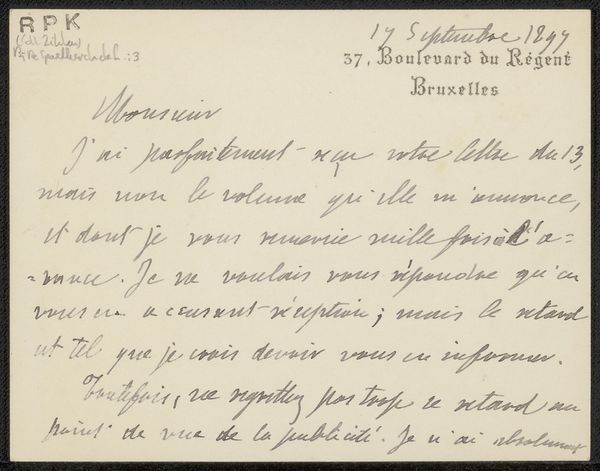 RPK
17 Septembre 1897
37, Boulevard du Régent
Bruxelles
Monsieur
J'ai parfaitement reçu votre lettre du 13,
mais non le volume qu'elle m'annonce,
et dont je vous remercie mille fois à l'a=
=vance. Je ne voulais vous répondre qu'en
vous en accusant réception; mais le retard
est tel que je crois devoir vous en informer.
Toutefois, ne regrettez pas trop ce retard au
point de vue de la publicité. Je n'ai absolument